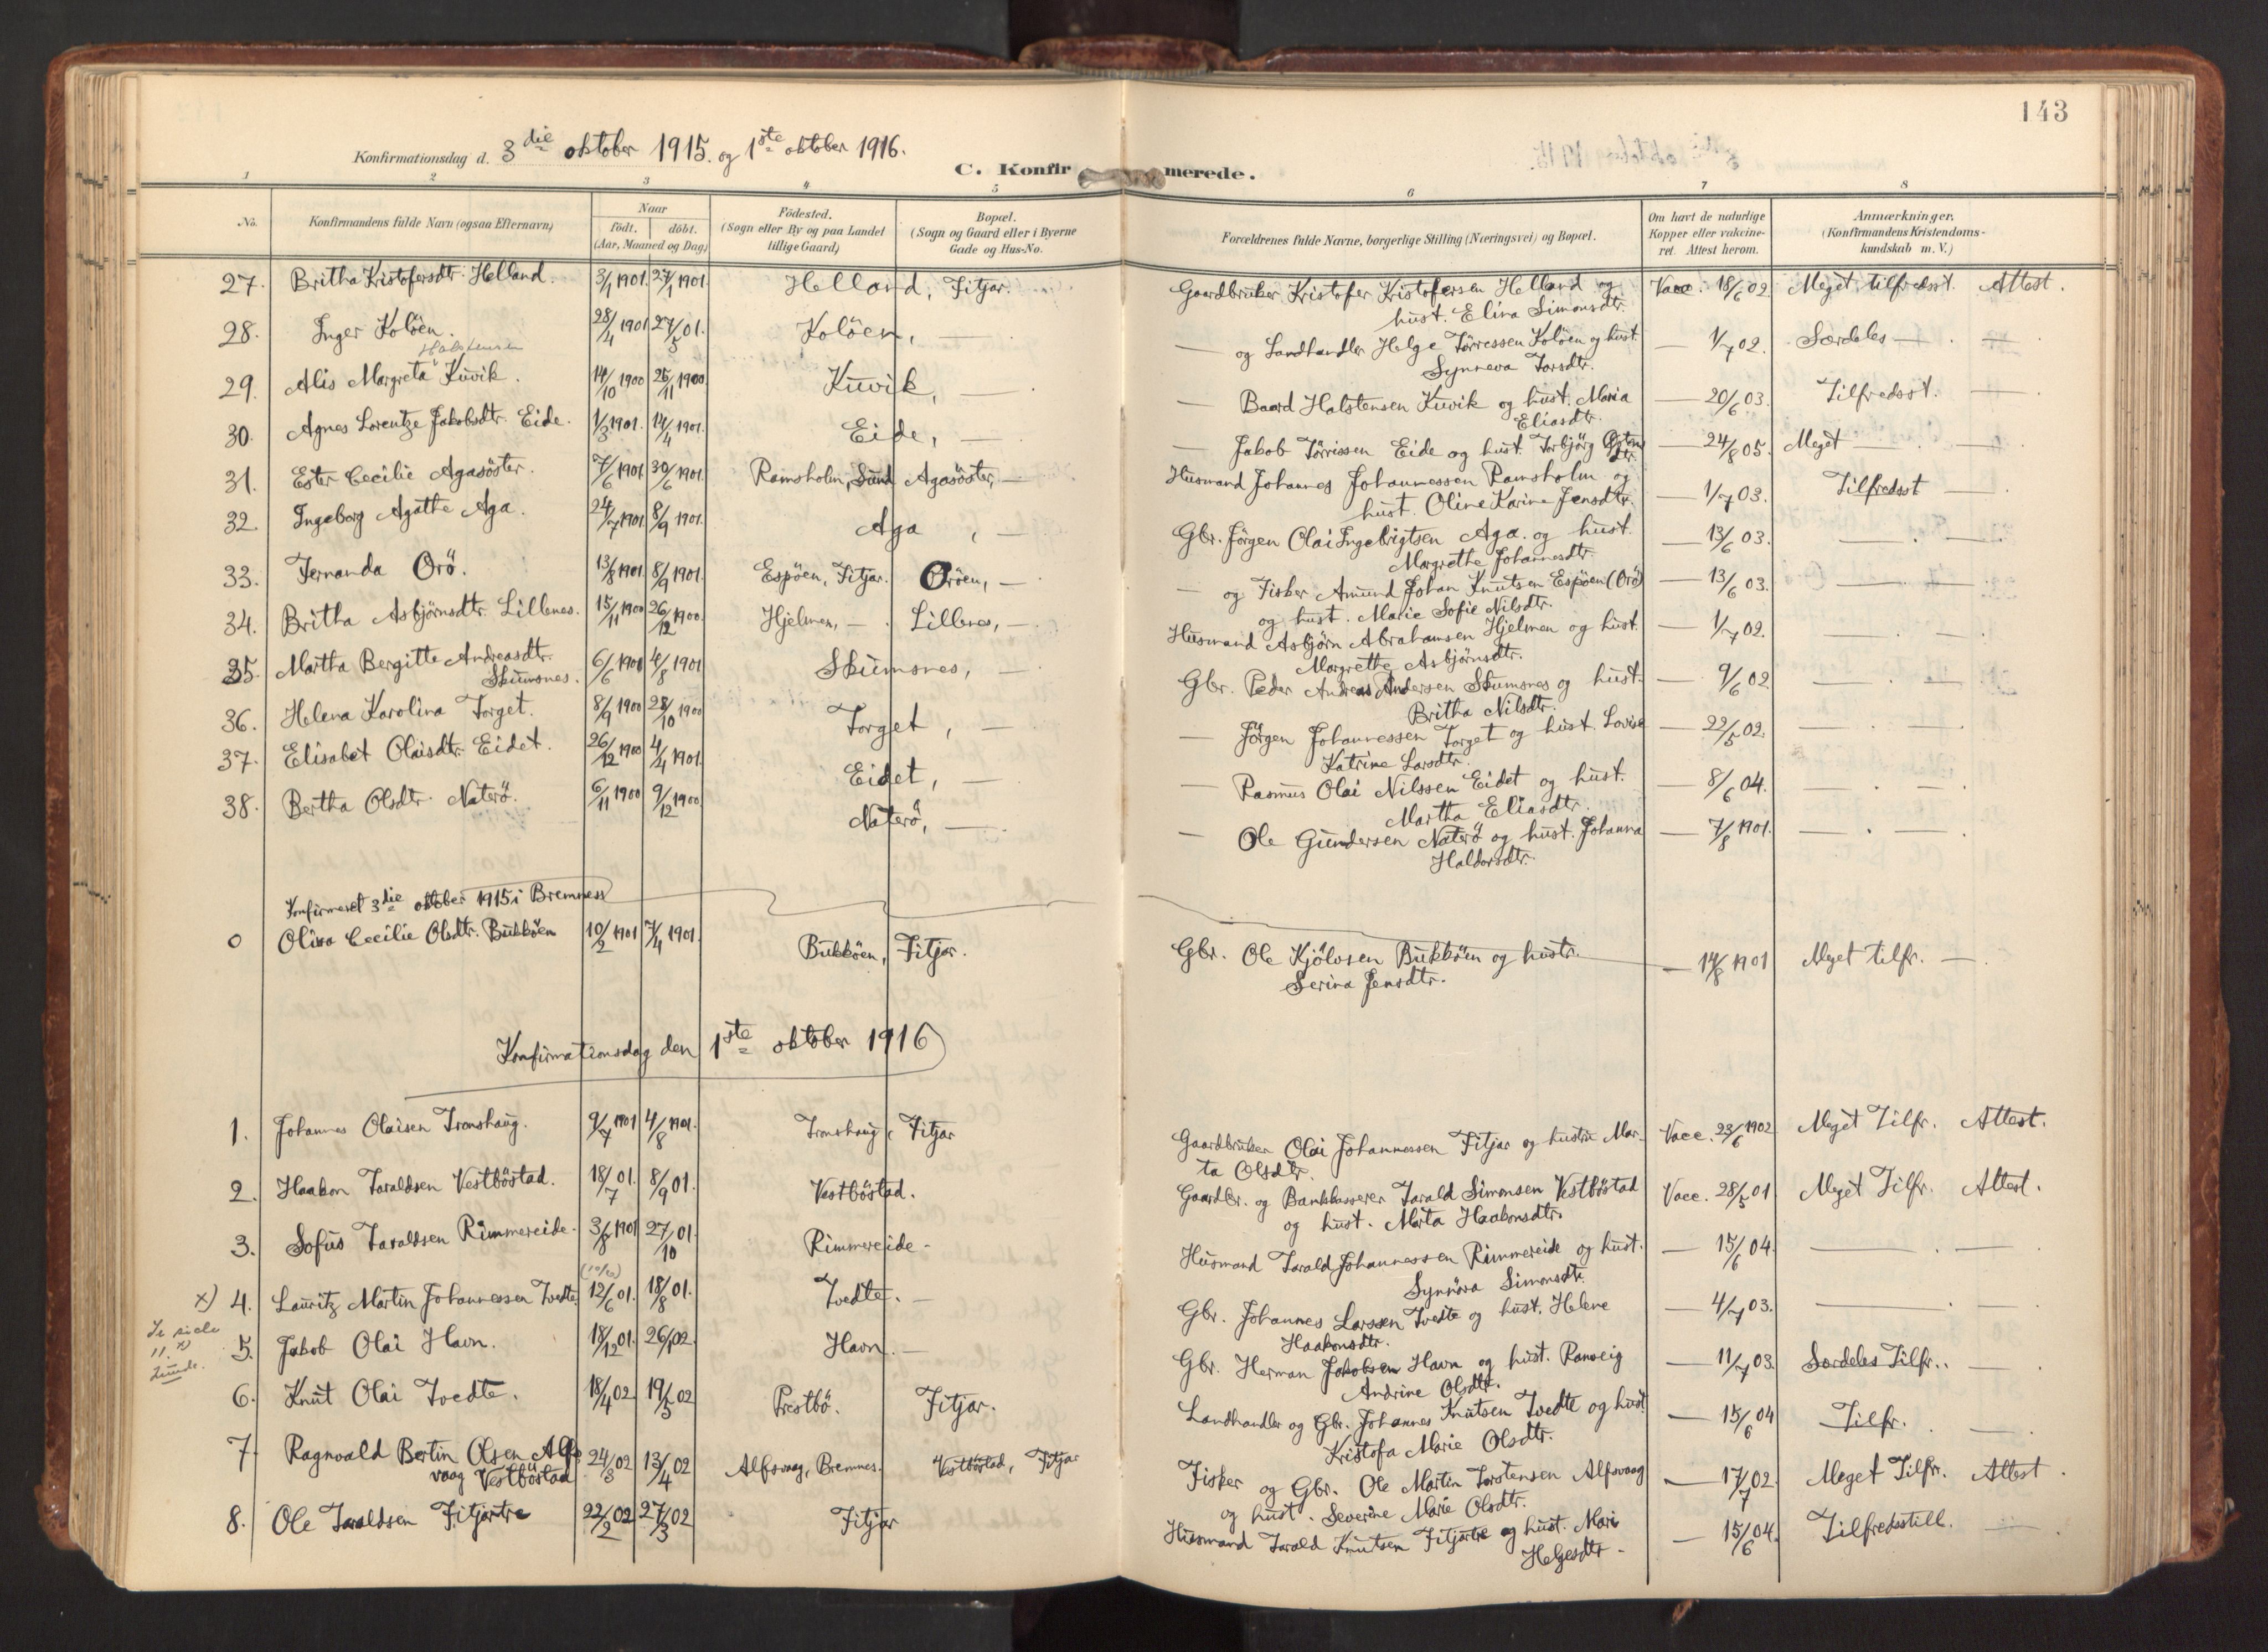 143
Konfirmationsdag d. 3die oktober 1915. og 1ste oktober 1916.
C. Konfirmerede.
1 2 3 4 5 6 7 8
No. Konfirmandens fulde Navn (ogsaa Efternavn) Naar født. døbt. (Aar, Maaned og Dag) Fødested. (Sogn eller By og paa Landet tillige Gaard) Bopæl. (Sogn og Gaard eller i Byerne Gade og Hus-No. Forældrenes fulde Navne, borgerlige Stilling (Næringsvei) og Bopæl. Om havt de naturlige Kopper eller vakcineret. Attest herom. Anmærkninger. (Konfirmandens Kristendomskundskab m. V.)
27. Britha Kristofersdtr. Helland. 3/1 1901. 27/1 1901. Helland, Fitjar. Gaardbruker Kristofer Kristofersen Helland og Vacc. 18/6 02. Meget tilfredsst. Attest.
hust. Elina Simonsdtr.
28. Inger Kolöen. 28/4 1901 27/5 01. Kolöen, — — og Landhandler Helge Törressen Kolöen og hust. — 1/7 02. Særdeles — . — .
Synneva Torsdtr.
Halstensen
29. Alis Margreta Kuvik. 14/10 1900 25/11 1900 Kuvik, — . — Baard Halstensen Kuvik og hust. Maria — 20/6 03. Tilfredsst. —
Eliasdtr.
30. Agnes Lorentze Jakobsdtr. Eide. 1/3 1901. 14/4 1901. Eide, — . — Jakob Törrissen Eide og hust. Torbjörg — 24/8 05. Meget — . —
31. Ester Cecilie Agasöster. 7/6 1901 30/6 1901. Ramsholm, Sund Agasöster, — Husmand Johannes Johannessen Ramsholm og — 1/7 03. Tilfredsst — .
hust. Oline Karine Jensdtr.
32. Ingeborg Agathe Aga. 24/7 1901. 8/9 1901. Aga , — . Gbr. Jörgen Olai Ingebrigtsen Aga. og hust. — 13/6 03. — . — .
Margrethe Johannesdtr.
33. Fernanda Orö. 13/8 1901. 8/9 1901. Espöen, Fitjar. Oröen, — — og Fisker Amund Johan Knutsen Espöen (Orö) — 13/6 03. — . —
og hust. Marie Sofie Nilsdtr.
34. Britha Asbjörnsdtr. Lillenes. 15/11 1900 26/12 1900. Hjelmen, — . Lillenes, — . Husmand Asbjörn Abrahamsen Hjelmen og hust. — 1/7 02. — . — .
Margrethe Asbjörnsdtr.
35. Martha Bergitte Andreasdtr. 6/6 1901 4/8 1901 Skumsnes, — Gbr. Peder Andreas Andersen Skumsnes og hust. — 9/6 02 — . — .
Skumsnes. Britha Nilsdtr.
36. Helena Karolina Torget. 8/9 1900 28/10 1900 Torget , — — Jörgen Johannessen Torget og hust. Lovise — 22/5 02. — . — .
Katrine Larsdtr.
37. Elisabet Olaisdtr. Eidet. 26/12 1900 4/4 1901. Eidet, — . — Rasmus Olai Nilssen Eidet og hust. — 8/6 04. — . — .
Martha Eliasdtr.
38. Bertha Olsdtr. Naterö. 6/11 1900 9/12 1900. Naterö, — . — Ole Gundersen Naterö og hust. Johanna — 7/8 1901. — . — .
Haldorsdtr.
Konfirmeret 3die oktober 1915 i Bremness
0 Olina Cecilie Olsdtr. Bukköen 10/2 1901 7/4 1901. Bukköen, Fitjar. Gbr. Ole Kjölvsen Bukköen og hustr. — 14/8 1901 Meget tilfr. — .
Serina Jensdtr.
Konfirmationsdag den 1ste oktober 1916
1. Johannes Olaisen Tronshaug. 9/7 1901 4/8 1901. Tronshaug, Fitjar Gaardbruker Olai Johannessen Fitjar og hustru Mar- Vacc. 23/6 1902 Meget Tilfr. Attest.
ta Olsdtr.
2. Haakon Taraldsen Vestböstad. 18/7 01. 8/9 01. Vestböstad. Gaardbr. og Bankkasserer Tarald Simonsen Vestböstad Vacc. 28/5 01 Meget Tilfr. Attest.
og hust. Marta Haakonsdtr.
3. Sofus Taraldsen Rimmereide. 3/8 1901 27/10 01. Rimmereide - Husmand Tarald Johannessen Rimmereide og hust. — 15/6 04. — . — .
Synnöva Simonsdtr.
x) 4. Lauritz Martin Johannessen Tvedte. 12/6 01. 18/8 01. Tvedte. — Gbr. Johannes Larssen Tvedte og hust. Helene — 4/7 03. — . — .
Haakonsdtr.
5. Jakob Olai Havn. 18/12 01. 26/1 02 Havn. — Gbr. Herman Jakobsen Havn og hust. Ranveig — 11/7 03 Særdeles Tilfr.. — .
Andrine Olsdtr.
6. Knut Olai Tvedte. 18/4 02 19/5 02 Prestbö. Fitjar. Landhandler og Gbr. Johannes Knutsen Tvedte og hust — 15/6 04 Tilfr. — .
Kristofa Marie Olsdtr.
7. Ragnvald Bertin Olsen Alfs 24/3 02 13/4 02 Alfsvaag, Bremnes. Vestböstad, Fitjar Fisker og Gbr. Ole Martin Torstensen Alfsvaag — 17/7 02. Meget Tilfr. Attest .
vaag Vestböstad og hust. Severine Marie Olsdtr.
8. Ole Taraldsen Fitjartre 22/2 02 27/3 02 Fitjar Husmand Tarald Knutsen Fitjartre og hust. Mari — 15/6 04. Tilfredsstill. —
Helgesdtr -